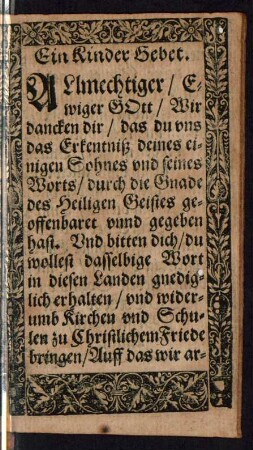 Ein Kinder Gebet.
ALlmechtiger / E-
wiger GOtt / Wir
dancken dir / das du vns
das Erkentniß deines ei-
nigen Sohnes vnd seines
Worts / durch die Gnade
des Heiligen Geistes ge-
offenbaret vnnd gegeben
hast. Vnd bitten dich / du
wollest dasselbige Wort
in diesen Landen gnedig-
lich erhalten / vnd wider-
umb Kirchen vnd Schu-
len zu Christlichem Friede
bringen / Auff das wir ar-